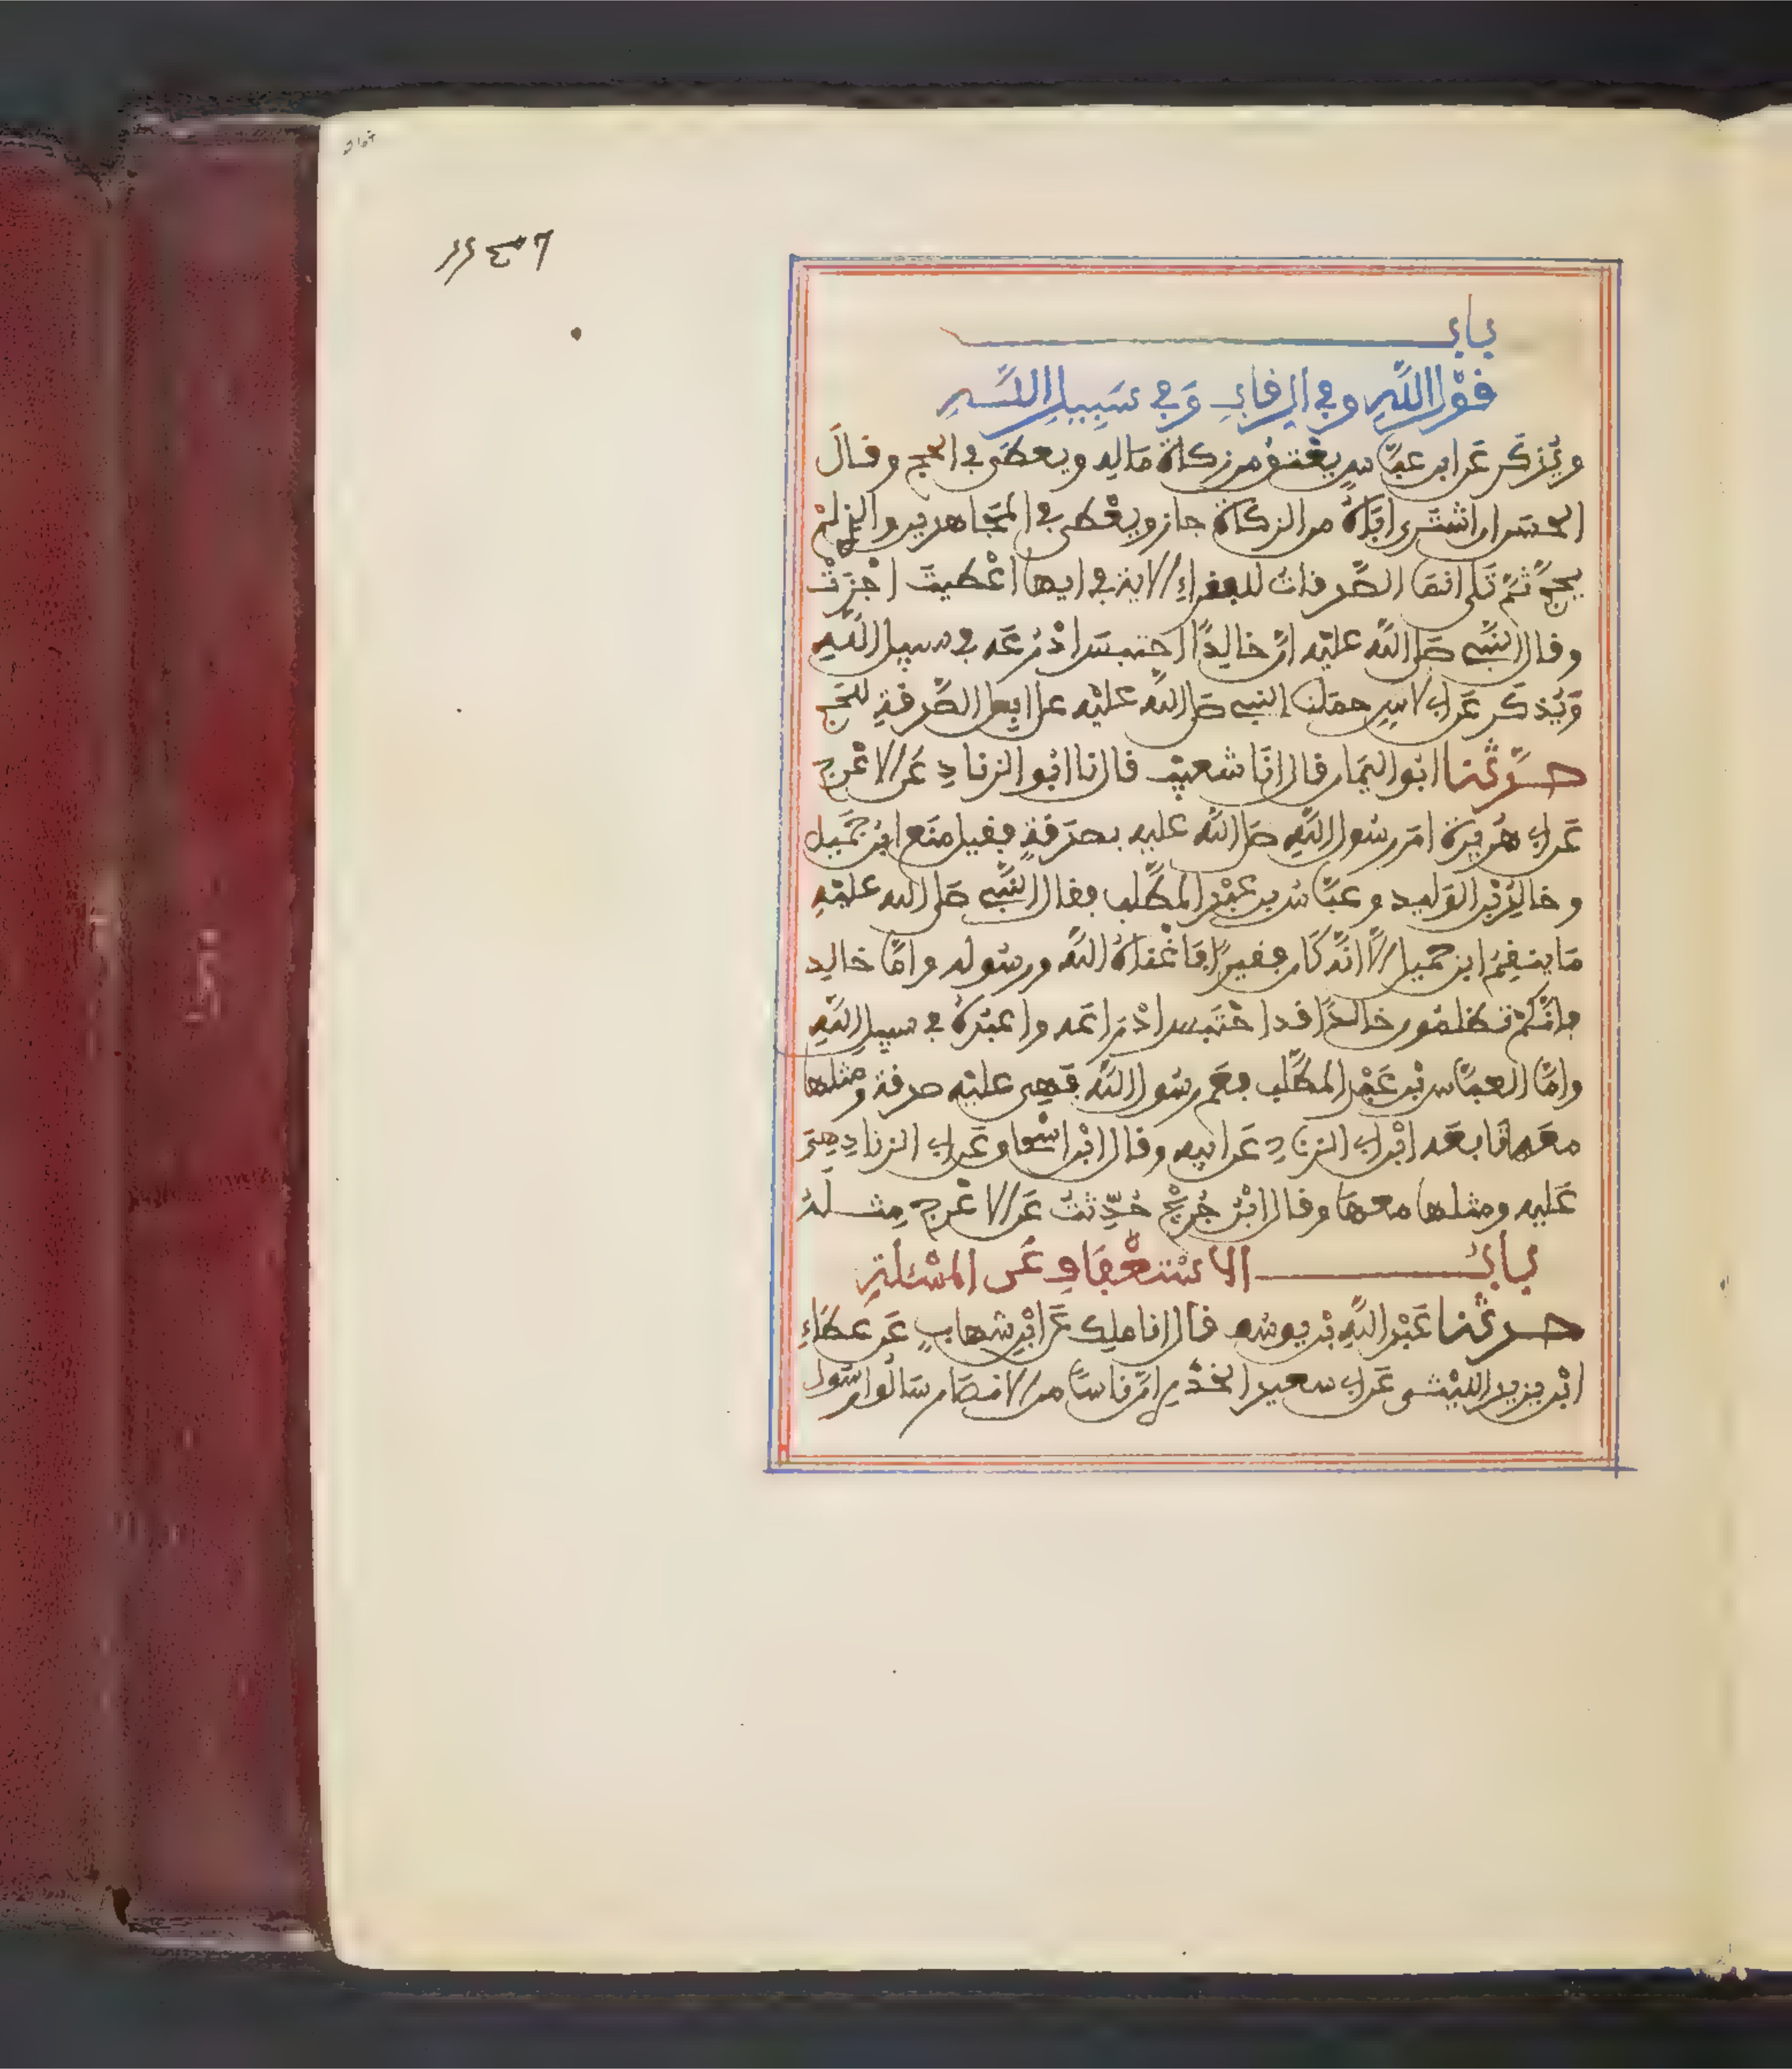 باب
قَوْل اللَّهِ وفي الرقاب وَفي سَبِيل اللَّهِ
ويُذكَر عَن ابن عبّاس يعْتقُ من زكاة مَالِه ويعطَى في الحج وقالَ
الحسَن ان اشتَرى ابَاهُ من الزكاة جاز ويعْطى في المجَاهدين والذي لمْ
يحجّ ثمّ تَلى انمَا الصَّدقات للفقراءِ الاية في ايها أعْطيتَ اجْزَتْ
وقال النّبي صَلى اللَّه عليْه انّ خالِدًا احتبسَ ادْرُعَه في سبيل اللَّهِ
وَيُذكَر عَن ابي لاسٍ حمَلنا النبي صَلى اللَّه عليْه على ابِل الصَّدقةِ للحج
حدَّثَنا ابُو اليمَان قال انَا شعيْب قال نا ابُو الزنادِ عَن الاعْرج
عَن ابي هُريرَة امَر رسُول اللَّهِ صَلى اللَّه عليه بصدَقةٍ فقيل منَع ابْن جَميل
وخالِدُ بْن الوَليد وعبّاسُ بن عبْد المطَّلب فقال النَّبي صَلى الله عليْهِ
مَا ينقِمُ ابن جميل الَّا انَّه كَان فقيرًا فَاغْناهُ اللَّه ورسُوله وامَّا خالِد
فانّكمْ تظلمُون خالدًا قد احْتَبس ادْرَاعَه واعْبُدَهُ في سبيل اللَّهِ
وامَّا العبّاس بْن عَبْد المطَّلب فعَم رسُول اللَّه فَهِى عليْه صدقة ومثلها
معَه تَابعَه ابْن ابي الزنادِ عَن ابيه وقال ابْن اسْحاق عَن ابي الزنادِ هِيَ
عَليه ومثلها معهَا وقال ابْن جُريْج حُدِّثتُ عَن الاعْرج مِثلَهُ
بابُ الاسْتعْفَافِ عَن المسْئلةِ
حدثَنا عَبْد اللَّهِ بْن يوسُف قال انا ملِك عَن ابْن شهابٍ عَن عطَاءِ
ابْن يزيد الليْثى عَن ابي سعيد الخدْري انّ ناسًا من الانصَار سَالُوا رسُول